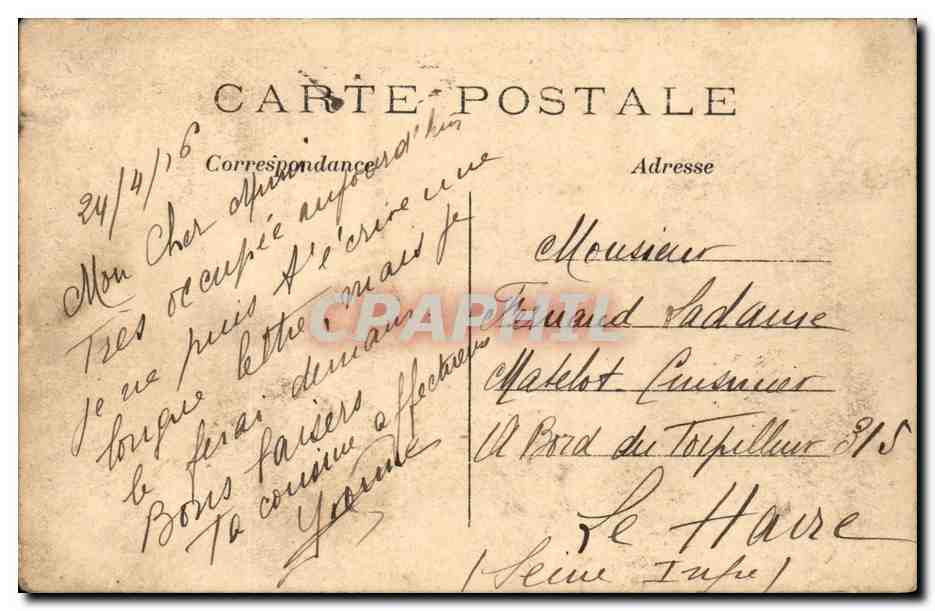 CARTE POSTALE
Correspondance
Adresse
24/4/16
Mon Cher
Très occupée aujourd'hui
je ne puis t'écrire une
longue lettre, mais je
le ferai demain
Bons baisers
Ta cousine affectueuse
Yvonne
Monsieur
Fernand Ladame
Matelot Cuisinier
A Bord du Torpilleur 315
Le Havre
(Seine Infre)
CPAPHIL